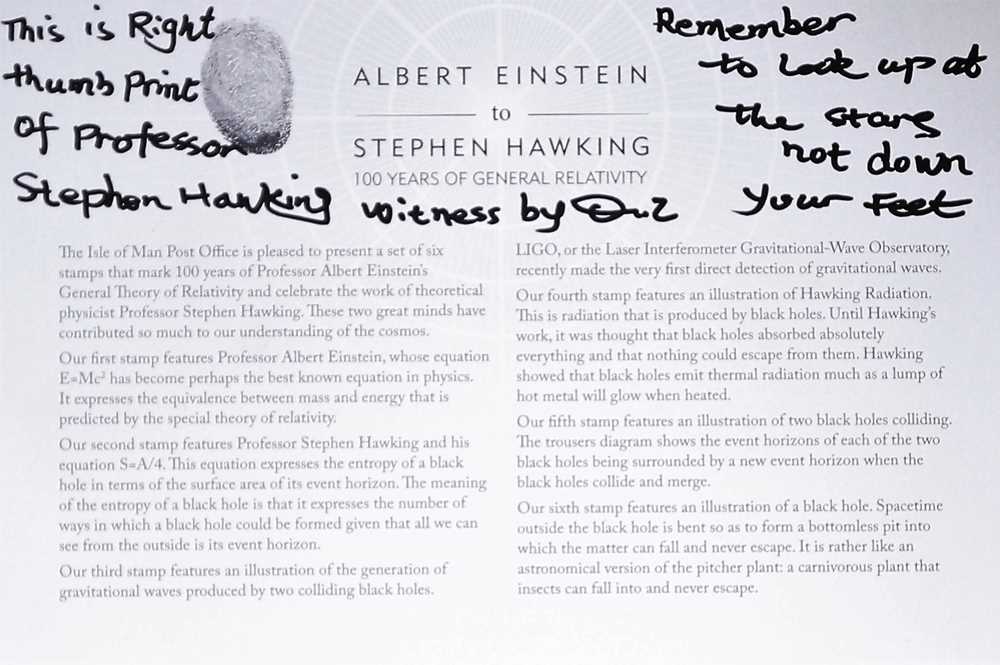 This is Right
thumb print
of Professor
Stephen Hawking
witness by
Remember
to look up at
the stars
not down
your Feet
ALBERT EINSTEIN
to
STEPHEN HAWKING
100 YEARS OF GENERAL RELATIVITY
The Isle of Man Post Office is pleased to present a set of six
stamps that mark 100 years of Professor Albert Einstein's
General Theory of Relativity and celebrate the work of theoretical
physicist Professor Stephen Hawking. These two great minds have
contributed so much to our understanding of the cosmos.
Our first stamp features Professor Albert Einstein, whose equation
E=Mc² has become perhaps the best known equation in physics.
It expresses the equivalence between mass and energy that is
predicted by the special theory of relativity.
Our second stamp features Professor Stephen Hawking and his
equation S=A/4. This equation expresses the entropy of a black
hole in terms of the surface area of its event horizon. The meaning
of the entropy of a black hole is that it expresses the number of
ways in which a black hole could be formed given that all we can
see from the outside is its event horizon.
Our third stamp features an illustration of the generation of
gravitational waves produced by two colliding black holes.
LIGO, or the Laser Interferometer Gravitational-Wave Observatory,
recently made the very first direct detection of gravitational waves.
Our fourth stamp features an illustration of Hawking Radiation.
This is radiation that is produced by black holes. Until Hawking's
work, it was thought that black holes absorbed absolutely
everything and that nothing could escape from them. Hawking
showed that black holes emit thermal radiation much as a lump of
hot metal will glow when heated.
Our fifth stamp features an illustration of two black holes colliding.
The trousers diagram shows the event horizons of each of the two
black holes being surrounded by a new event horizon when the
black holes collide and merge.
Our sixth stamp features an illustration of a black hole. Spacetime
outside the black hole is bent so as to form a bottomless pit into
which the matter can fall and never escape. It is rather like an
astronomical version of the pitcher plant: a carnivorous plant that
insects can fall into and never escape.